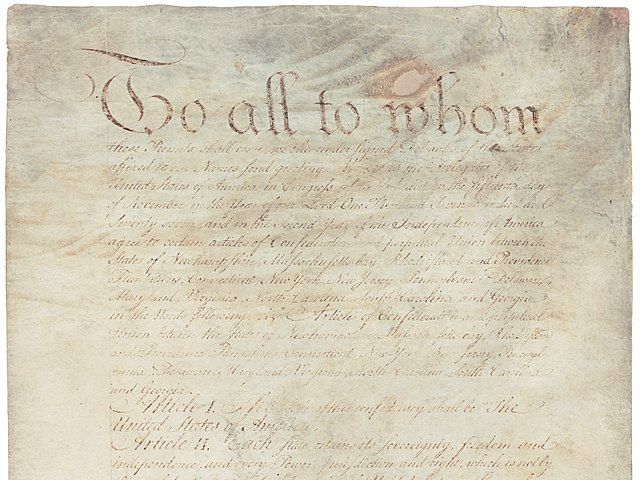 To all to whom
these Presents shall come, we the under signed Delegates of the States
affixed to our Names send greeting. Whereas the Delegates of the
United States of America in Congress assembled did on the fifteenth day
of November in the Year of our Lord One Thousand Seven Hundred and
Seventy seven, and in the Second Year of the Independence of America
agree to certain articles of Confederation and perpetual Union between the
States of Newhampshire, Massachusetts bay, Rhodeisland and Providence
Plantations, Connecticut, New York, New Jersey, Pennsylvania, Delaware,
Maryland, Virginia, North Carolina, South Carolina and Georgia
in the Words following, viz. Articles of Confederation and perpetual
Union between the States of Newhampshire, Massachusetts bay, Rhodeisland
and Providence Plantations, Connecticut, New York, New Jersey, Pennsyl
vania, Delaware, Maryland, Virginia, North Carolina, South Carolina
and Georgia.
Article I. The Stile of this confederacy shall be "The
United States of America."
Article II. Each state retains its sovereignty, freedom and
independence, and every Power, Jurisdiction and right, which is not by